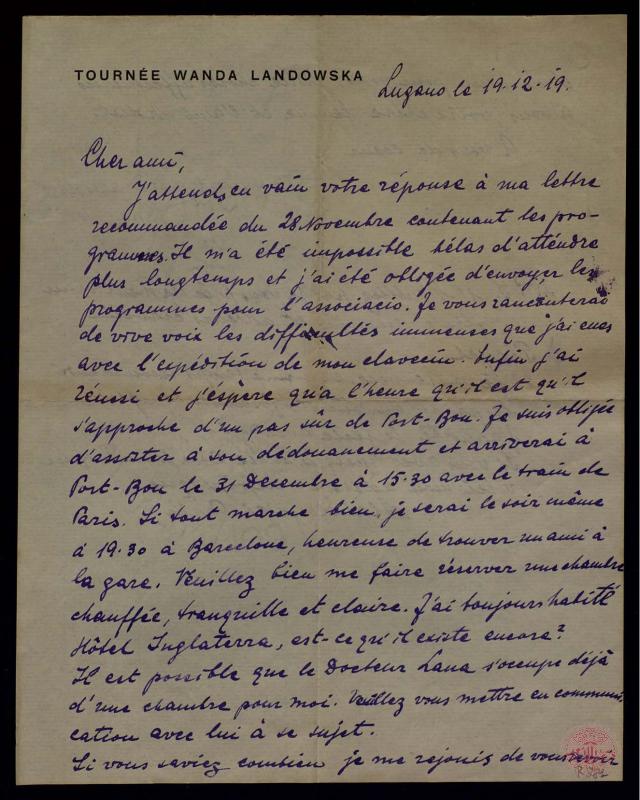 TOURNÉE WANDA LANDOWSKA
Lugano le 19.12.19.
Cher ami,
J'attends en vain votre réponse à ma lettre
recommandée du 28 Novembre contenant les pro-
grammes. Il m'a été impossible hélas d'attendre
plus longtemps et j'ai été obligée d'envoyer les
programmes pour l'associacio. Je vous raconterai
de vive voix les difficultés immenses que j'ai eues
avec l'expédition de mon clavecin. Enfin j'ai
réussi et j'éspère qu'a l'heure qu'il est qu'il
s'approche d'un pas sûr de Port-Bou. Je suis obligée
d'assister à son dédouanement et arriverai à
Port-Bou le 31 Decembre à 15.30 avec le train de
Paris. Si tout marche bien, je serai le soir même
à 19.30 à Barcelone, heureuse de trouver un ami à
la gare. Veuillez bien me faire réserver une chambre
chauffée, tranquille et claire. J'ai toujours habité
Hôtel Inglaterra, est-ce qu'il existe encore?
Il est possible que le Docteur Lana s'occupe déjà
d'une chambre pour moi. Veuillez vous mettre en communi,
cation avec lui à se sujet.
Si vous saviez combien je me rejouis de vous revoir